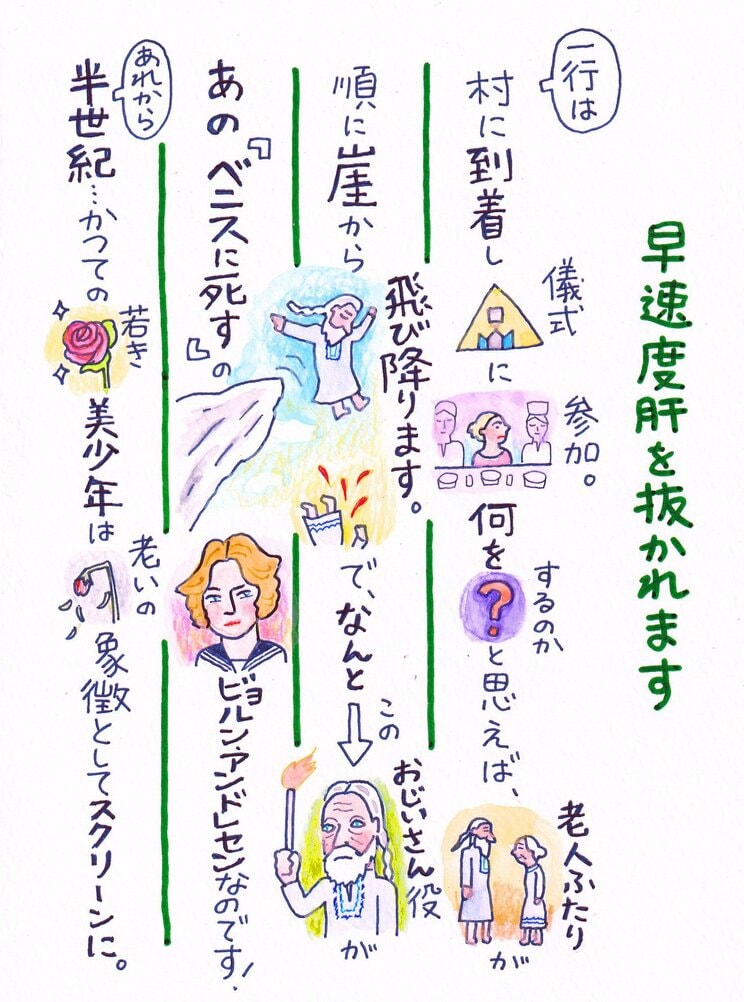 早速度肝を抜かれます
一行は
村に到着し儀式に参加。何をするのか?と思えば、老人ふたりが
順に崖から飛び降ります。で、なんとこのおじいさん役が
あの『ベニスに死す』のビョルン・アンドレセンなのです!
あれから
半世紀…かつての若き美少年は老いの象徴としてスクリーンに。